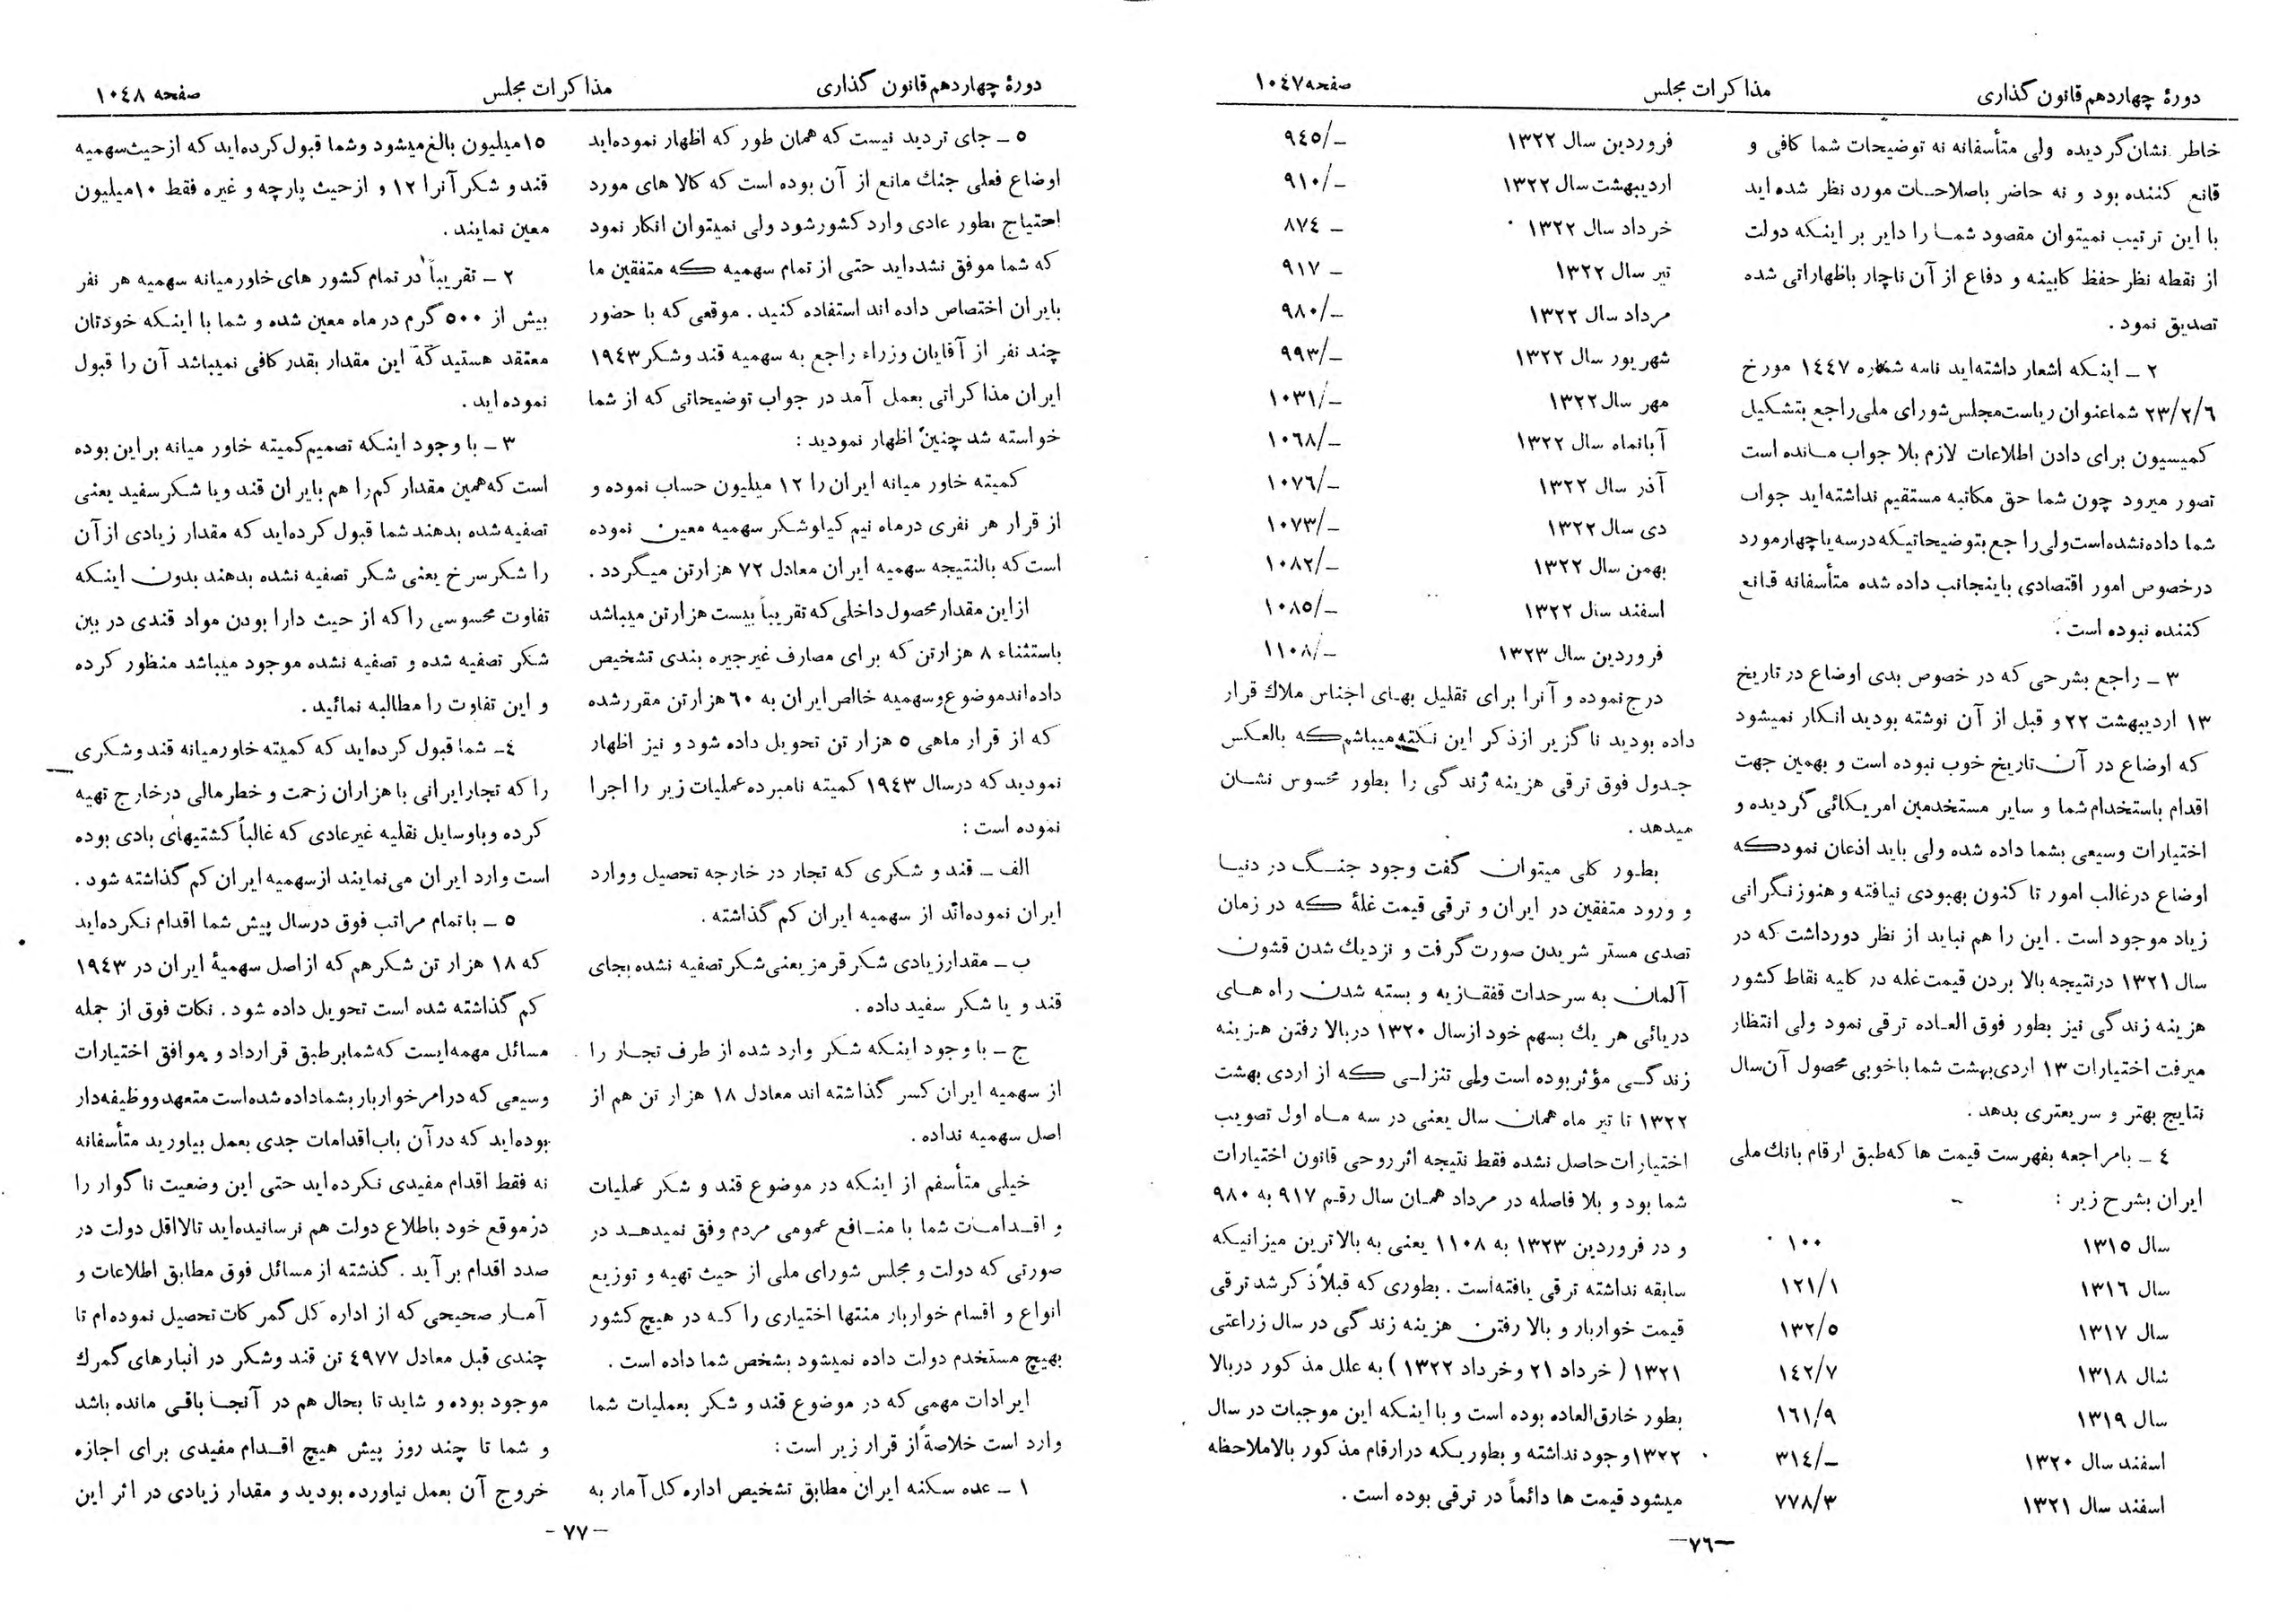 دورهٔ چهاردهم قانون گذاری
مذاکرات مجلس
صفحه ۱۰٤۷
خاطر نشان گردیده ولی متأسفانه نه توضیحات شما کافی و
قانع کننده بود و نه حاضر باصلاحات مورد نظر شده اید
با این ترتیب نمیتوان مقصود شما را دایر بر اینکه دولت
از نقطه نظر حفظ کابینه و دفاع از آن ناچار باظهاراتی شده
تصدیق نمود.
۲ ـ اینکه اشعار داشته‌اید نامه شماره ۱٤٤۷ مورخ
۲۳/۲/٦ شما عنوان ریاست مجلس شورای ملی راجع بتشکیل
کمیسیون برای دادن اطلاعات لازم بلا جواب مانده است
تصور میرود چون شما حق مکاتبه مستقیم نداشته‌اید جواب
شما داده نشده است ولی راجع بتوضیحاتیکه در سه یا چهار مورد
درخصوص امور اقتصادی باینجانب داده شده متأسفانه قانع
کننده نبوده است.
۳ ـ راجع بشرحی که در خصوص بدی اوضاع در تاریخ
۱۳ اردیبهشت ۲۲ و قبل از آن نوشته بودید انکار نمیشود
که اوضاع در آن تاریخ خوب نبوده است و بهمین جهت
اقدام باستخدام شما و سایر مستخدمین امریکائی گردیده و
اختیارات وسیعی بشما داده شده ولی باید اذعان نمودکه
اوضاع درغالب امور تا کنون بهبودی نیافته و هنوز نگرانی
زیاد موجود است . این را هم نباید از نظر دورداشت که در
سال ۱۳۲۱ درنتیجه بالا بردن قیمت غله در کلیه نقاط کشور
هزینه زندگی نیز بطور فوق العاده ترقی نمود ولی انتظار
میرفت اختیارات ۱۳ اردی‌بهشت شما باخوبی محصول آن سال
نتایج بهتر و سریعتری بدهد .
٤ ـ بامراجعه بفهرست قیمت ها که طبق ارقام بانک ملی
ایران بشرح زیر :
سال ۱۳۱٥ ۱۰۰
سال ۱۳۱٦ ۱۲۱/۱
سال ۱۳۱۷ ۱۳۲/٥
سال ۱۳۱۸ ۱٤۲/۷
سال ۱۳۱۹ ۱٦۱/۹
اسفند سال ۱۳۲۰ ۳۱٤/ـ
اسفند سال ۱۳۲۱ ۷۷۸/۳
فروردین سال ۱۳۲۲ ۹٤٥/ـ
اردیبهشت سال ۱۳۲۲ ۹۱۰/ـ
خرداد سال ۱۳۲۲ ۸۷٤ ـ
تیر سال ۱۳۲۲ ۹۱۷ ـ
مرداد سال ۱۳۲۲ ۹۸۰/ـ
شهریور سال ۱۳۲۲ ۹۹۳/ـ
مهر سال ۱۳۲۲ ۱۰۳۱/ـ
آبانماه سال ۱۳۲۲ ۱۰٦۸/ـ
آذر سال ۱۳۲۲ ۱۰۷٦/ـ
دی سال ۱۳۲۲ ۱۰۷۳/ـ
بهمن سال ۱۳۲۲ ۱۰۸۲/ـ
اسفند سال ۱۳۲۲ ۱۰۸٥/ـ
فروردین سال ۱۳۲۳ ۱۱۰۸/ـ
درج نموده و آنرا برای تقلیل بهای اجناس ملاک قرار
داده بودید ناگزیر ازذکر این نکته میباشم که بالعکس
جدول فوق ترقی هزینه زندگی را بطور محسوس نشان
میدهد .
بطور کلی میتوان گفت وجود جنگ در دنیا
و ورود متفقین در ایران و ترقی قیمت غلهٔ که در زمان
تصدی مستر شریدن صورت گرفت و نزدیک شدن قشون
آلمان به سرحدات قفقازیه و بسته شدن راه های
دریائی هر یک بسهم خود ازسال ۱۳۲۰ دربالا رفتن هزینه
زندگی مؤثر بوده است ولی تنزلی که از اردی بهشت
۱۳۲۲ تا تیر ماه همان سال یعنی در سه ماه اول تصویب
اختیارات حاصل نشده فقط نتیجه اثر روحی قانون اختیارات
شما بود و بلا فاصله در مرداد همان سال رقم ۹۱۷ به ۹۸۰
و در فروردین ۱۳۲۳ به ۱۱۰۸ یعنی به بالاترین میزانیکه
سابقه نداشته ترقی یافته‌است . بطوری که قبلاً ذکر شد ترقی
قیمت خواربار و بالا رفتن هزینه زندگی در سال زراعتی
۱۳۲۱ ( خرداد ۲۱ و خرداد ۱۳۲۲ ) به علل مذکور دربالا
بطور خارق العاده بوده است و با اینکه این موجبات در سال
۱۳۲۲ وجود نداشته و بطوریکه درارقام مذکور بالاملاحظه
میشود قیمت ها دائماً در ترقی بوده است .
ـ۷٦ـ
دورهٔ چهاردهم قانون گذاری
مذاکرات مجلس
صفحه ۱۰٤۸
٥ ـ جای تردید نیست که همان طور که اظهار نموده‌اید
اوضاع فعلی جنگ مانع از آن بوده است که کالا های مورد
احتیاج بطور عادی وارد کشور شود ولی نمیتوان انکار نمود
که شما موفق نشده‌اید حتی از تمام سهمیه که متفقین ما
بایران اختصاص داده اند استفاده کنید . موقعی که با حضور
چند نفر از آقایان وزراء راجع به سهمیه قند و شکر ۱۹٤۳
ایران مذاکراتی بعمل آمد در جواب توضیحاتی که از شما
خواسته شد چنین اظهار نمودید :
کمیته خاور میانه ایران را ۱۲ میلیون حساب نموده و
از قرار هر نفری درماه نیم کیلوشکر سهمیه معین نموده
است که بالنتیجه سهمیه ایران معادل ۷۲ هزارتن میگردد .
از این مقدار محصول داخلی که تقریباً بیست هزارتن میباشد
باستثناء ۸ هزارتن که برای مصارف غیرجیره بندی تشخیص
داده‌اند موضوع وسهمیه خالص ایران به ٦۰ هزارتن مقرر شده
که از قرار ماهی ٥ هزار تن تحویل داده شود و نیز اظهار
نمودید که درسال ۱۹٤۳ کمیته نامبرده عملیات زیر را اجرا
نموده است :
الف ـ قند و شکری که تجار در خارجه تحصیل ووارد
ایران نموده‌اند از سهمیه ایران کم گذاشته .
ب ـ مقدار زیادی شکر قرمز یعنی شکر تصفیه نشده بجای
قند و یا شکر سفید داده .
ج ـ با وجود اینکه شکر وارد شده از طرف تجار را
از سهمیه ایران کسر گذاشته اند معادل ۱۸ هزار تن هم از
اصل سهمیه نداده .
خیلی متأسفم از اینکه در موضوع قند و شکر عملیات
و اقدامات شما با منافع عمومی مردم وفق نمیدهد در
صورتی که دولت و مجلس شورای ملی از حیث تهیه و توزیع
انواع و اقسام خواربار منتها اختیاری را که در هیچ کشور
بهیچ مستخدم دولت داده نمیشود بشخص شما داده است .
ایرادات مهمی که در موضوع قند و شکر بعملیات شما
وارد است خلاصةً از قرار زیر است :
۱ ـ عده سکنه ایران مطابق تشخیص اداره کل آمار به
۱٥ میلیون بالغ میشود وشما قبول کرده‌اید که از حیث سهمیه
قند و شکر آنرا ۱۲ و از حیث پارچه و غیره فقط ۱۰ میلیون
معین نمایند .
۲ ـ تقریباً در تمام کشور های خاورمیانه سهمیه هر نفر
بیش از ٥۰۰ گرم در ماه معین شده و شما با اینکه خودتان
معتقد هستید که این مقدار بقدر کافی نمیباشد آن را قبول
نموده‌اید .
۳ ـ با وجود اینکه تصمیم کمیته خاور میانه براین بوده
است که همین مقدار کم را هم بایران قند ویا شکر سفید یعنی
تصفیه شده بدهند شما قبول کرده‌اید که مقدار زیادی از آن
را شکر سرخ یعنی شکر تصفیه نشده بدهند بدون اینکه
تفاوت محسوسی را که از حیث دارا بودن مواد قندی در بین
شکر تصفیه شده و تصفیه نشده موجود میباشد منظور کرده
و این تفاوت را مطالبه نمائید .
٤ـ شما قبول کرده‌اید که کمیته خاورمیانه قند وشکری
را که تجار ایرانی با هزاران زحمت و خطر مالی درخارج تهیه
کرده وباوسایل نقلیه غیرعادی که غالباً کشتیهای بادی بوده
است وارد ایران می‌نمایند از سهمیه ایران کم گذاشته شود .
٥ ـ باتمام مراتب فوق درسال پیش شما اقدام نکرده‌اید
که ۱۸ هزار تن شکر هم که از اصل سهمیهٔ ایران در ۱۹٤۳
کم گذاشته شده است تحویل داده شود . نکات فوق از جمله
مسائل مهمه‌ایست که شما بر طبق قرارداد و موافق اختیارات
وسیعی که در امر خواربار بشما داده شده‌است متعهد ووظیفه‌دار
بوده‌اید که در آن باب اقدامات جدی بعمل بیاورید متأسفانه
نه فقط اقدام مفیدی نکرده‌اید حتی این وضعیت ناگوار را
درموقع خود باطلاع دولت هم نرسانیده‌اید تالااقل دولت در
صدد اقدام برآید . گذشته از مسائل فوق مطابق اطلاعات و
آمار صحیحی که از اداره کل گمرکات تحصیل نموده‌ام تا
چندی قبل معادل ٤۹۷۷ تن قند وشکر در انبارهای گمرک
موجود بوده و شاید تا بحال هم در آنجا باقی مانده باشد
و شما تا چند روز پیش هیچ اقدام مفیدی برای اجازه
خروج آن بعمل نیاورده بودید و مقدار زیادی در اثر این
ـ۷۷ـ